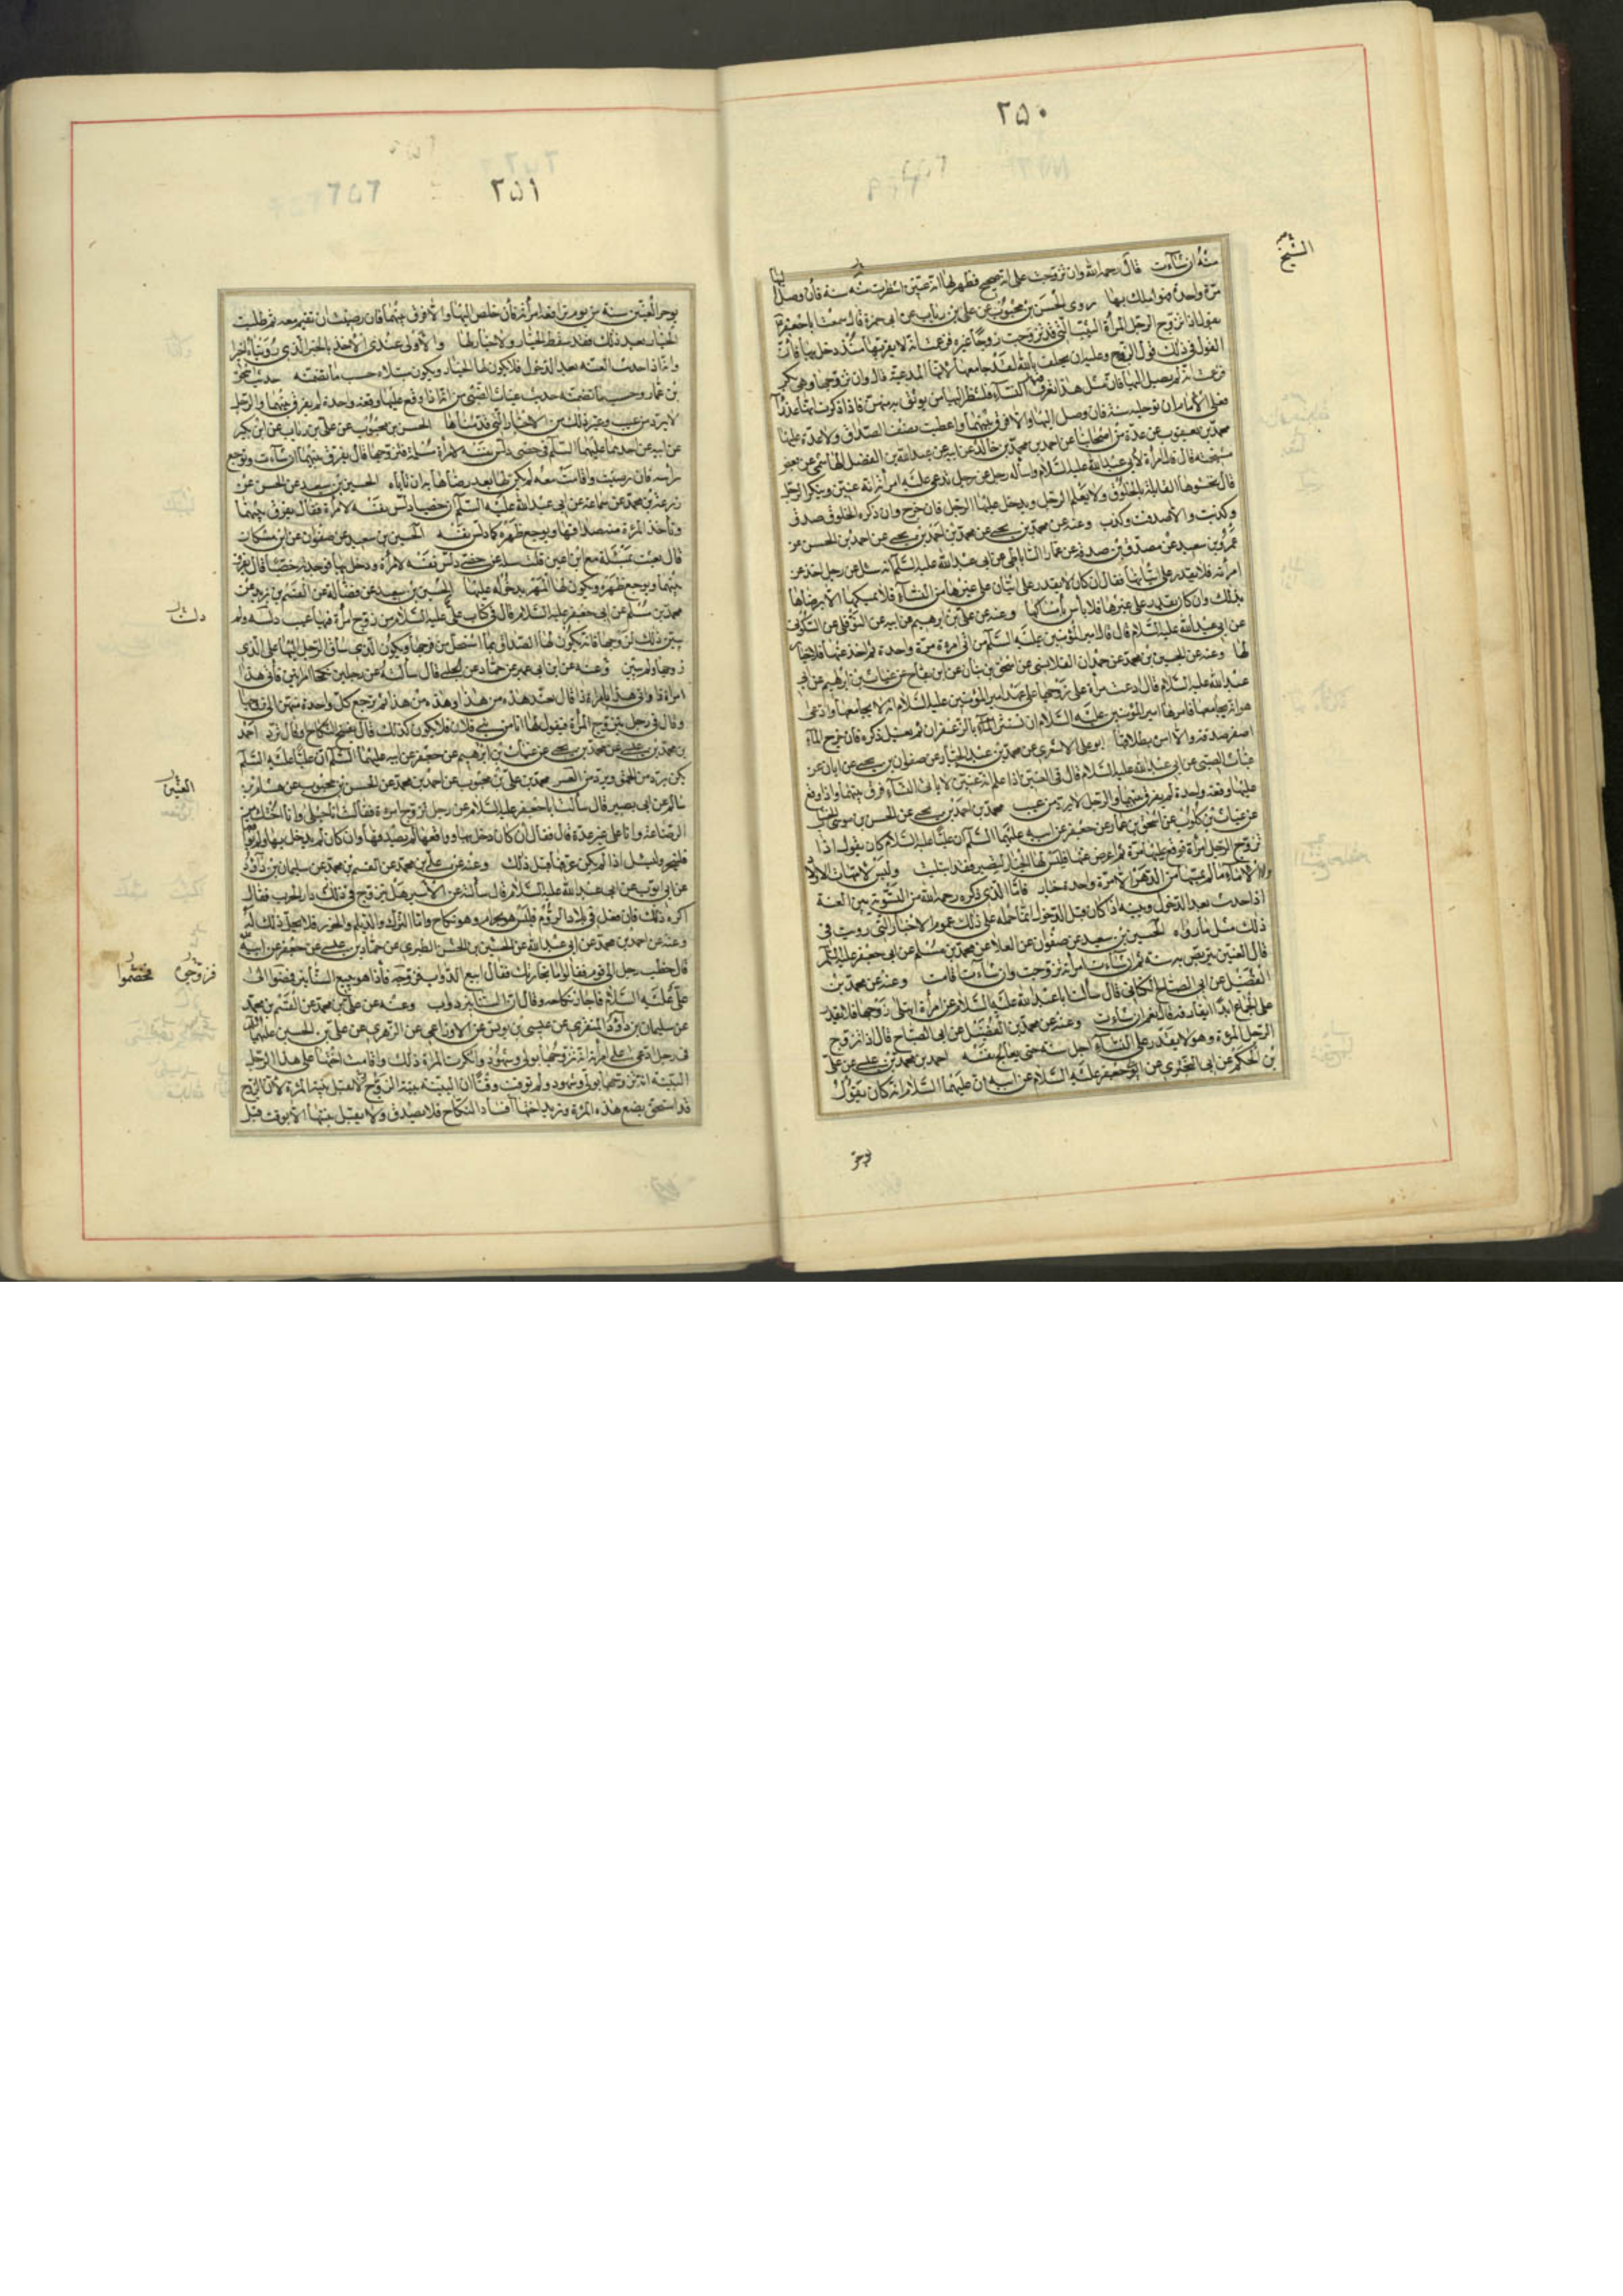 ٢٥٠
الشيخ
منه ان شاءت قال رحمه الله وان تزوجت على انه صحيح فظهر لها انه عنين انتظرت به سنة فان وصل اليها
مرة واحدة فهو املك بها روى الحسن بن محبوب عن على بن رئاب عن ابى حمزة قال سمعت ابا جعفر
يقول اذا تزوج الرجل المرأة الثيب التى قد تزوجت زوجا غيره فزعمت انه لا يقربها منذ دخل بها فان
القول فى ذلك قول الزوج وعليه ان يحلف بالله لقد جامعها لانها المدعية قال وان تزوجها وهى بكر
فزعمت انه لم يصل اليها فان مثل هذا تعرف النساء فلينظر اليها من يوثق به منهن فاذا ذكرت انها عذراء
فعلى الامام ان يؤجله سنة فان وصل اليها والا فرق بينهما واعطيت نصف الصداق ولا عدة عليها
محمد بن يعقوب عن عدة من اصحابنا عن احمد بن محمد بن خالد عن ابيه عن عبد الله بن الفضل الهاشمى عن بعض
مشيخته قال قالت امرأة لابى عبد الله عليه السلام وسأله رجل عن رجل تدعى عليه امرأته انه عنين وينكر الرجل
قال تحشوها القابلة بالخلوق ولا يعلم الرجل ويدخل عليها الرجل فان خرج وان ذكره الخلوق صدق
وكذبت والا صدقت وكذب وعنه عن محمد بن يحيى عن محمد بن احمد بن يحيى عن احمد بن الحسن عن
عمرو بن سعيد عن مصدق بن صدقة عن عمار الساباطى عن ابى عبد الله عليه السلم انه سئل عن رجل اخذ عن
امرأته فلا يقدر على اتيانها فقال ان كان لا يقدر على اتيان على غيرها من النساء فلا يمسكها الا برضاها
بذلك وان كان يقدر على غيرها فلا بأس بامساكها وعنه عن على بن ابرهيم عن ابيه عن النوفلى عن السكونى
عن ابى عبد الله عليه السلام قال قال امير المؤمنين عليه السلم من اتى امرءة مرة واحدة ثم اخذ عنها فلا خيار
لها وعنه عن الحسين بن محمد عن حمدان القلانسى عن اسحق بن بنان عن ابن بقاح عن غياث بن ابرهيم عن ابى
عبد الله عليه السلام قال ادعت امرأة على زوجها على عهد امير المؤمنين عليه السلام انه لا يجامعها وادعى
هو انه يجامعها فامرها امير المؤمنين عليه السلام ان تستثفر بالزعفران ثم يغسل ذكره فان خرج الماء
اصفر صدقه والا امره بطلاقها ابو على الاشعرى عن محمد بن عبد الجبار عن صفوان بن يحيى عن ابان عن
غياث الضبى عن ابى عبد الله عليه السلام قال فى العنين اذا علم انه عنين لا ياتى النساء فرق بينهما واذا وقع
عليها وقعة واحدة لم يفرق بينهما والرجل لا يرد من عيب محمد بن احمد بن يحيى عن الحسن بن موسى الخشاب
عن غياث بن كلوب عن اسحق بن عمار عن جعفر عن ابيه عليهما السلم ان عليا عليه السلام كان يقول اذا
تزوج الرجل امرأة فوقع عليها مرة ثم اعرض عنها فليس لها الخيار لتصبر فقد ابتليت وليس لامهات الاولاد
ولا الاماء ما لم يمسها من الدهر الا مرة واحدة خيار فاما الذى ذكره رحمه الله من التسوية بين العنة
اذا حدث بعد الدخول وبينه اذا كان قبل الدخول انما حمله على ذلك عموم الاخبار التى رويت فى
ذلك مثل ما رواه الحسين بن سعيد عن صفوان عن العلا عن محمد بن مسلم عن ابى جعفر عليه السلم
قال العنين يتربص به سنة ثم ان شاءت امرأته تزوجت وان شاءت اقامت وعنه عن محمد بن
الفضيل عن ابى الصباح الكنانى قال سألت ابا عبد الله عليه السلام عن امرأة ابتلى زوجها فلا يقدر
على الجماع ابدا اتفارقه قال نعم ان شاءت وعنه عن محمد بن الفضيل عن ابى الصباح قال اذا تزوج
الرجل المرءة وهو لا يقدر على النساء اجل سنة حتى يعالج نفسه احمد بن محمد بن عيسى عن على
بن الحكم عن ابى البخترى عن ابى جعفر عليه السلام عن ابيه ان عليا عليهما السلام انه كان يقول
يؤخر
٢٥١
يؤخر العنين سنة من يوم ترافعه امرأته فان خلص اليها والا فرق بينهما فان رضيت ان تقيم معه ثم طلبت
الخيار بعد ذلك فقد سقط الخيار ولا خيار لها والاولى عندى الاخذ بالخبر الذى رويناه اخيرا
وانه اذا حدث العنة بعد الدخول فلا يكون لها الخيار ويكون مبتلاه حسب ما تضمنه حديث اسحق
بن عمار وحسب ما تضمنه حديث غياث الضبى من انه اذا وقع عليها وقعة واحدة لم يفرق بينهما والرجل
لا يرد من عيب وغير ذلك من الاخبار التى قدمناها الحسن بن محبوب عن على بن رئاب عن ابن بكير
عن ابيه عن احدهما عليهما السلم فى خصى دلس نفسه لامرأة مسلمة فتزوجها قال يفرق بينهما ان شاءت ويوجع
رأسه فان رضيت واقامت معه لم يكن لها بعد رضاها به ان تاباه الحسين بن سعيد عن الحسن عن
زرعة بن محمد عن سماعة عن ابى عبد الله عليه السلم ان خصيا دلس نفسه لامرأة فقال يفرق بينهما
وتأخذ المرءة منه صداقها ويوجع ظهره كما دلس نفسه الحسين بن سعيد عن صفوان عن ابن مسكان
قال بعثت بمسئلة مع ابن اعين قلت سله عن خصى دلس نفسه لامرأة ودخل بها فوجدته خصيا قال يفرق
بينهما ويوجع ظهره ويكون لها المهر بدخوله عليها الحسين بن سعيد عن فضالة عن القسم بن بريد عن
محمد بن مسلم عن ابى جعفر عليه السلام قال فى كتاب على عليه السلام من زوج امرأة فيها عيب دلسه ولم
دلسته
يبين ذلك لزوجها فانه يكون لها الصداق بما استحل من فرجها ويكون الذى ساق الرجل اليها على الذى
زوجها ولم يبين وعنه عن ابن ابى عمير عن حماد عن الحلبى قال سألته عن رجلين نكحا امرأتين فأتى هذا
امرأة ذا واتى هذا امرأة ذا قال تعتد هذه من هذا وهذه من هذا ثم ترجع كل واحدة منهن الى زوجها
وقال فى رجل يتزوج المرأة فيقول لها انا من بنى فلان فلا يكون كذلك قال يفسخ النكاح او قال ترد احمد
بن محمد بن عيسى عن محمد بن يحيى عن غياث بن ابراهيم عن جعفر عن ابيه عليهما السلم ان عليا عليه السلم لم
يكن يرد من الحمق ويرد من العسر محمد بن على بن محبوب عن احمد بن محمد عن الحسن بن محبوب عن هشام بن
العنين
سالم عن ابى بصير قال سألت ابا جعفر عليه السلام عن رجل تزوج امرءة فقالت انا حبلى وانا اختك من
الرضاعة وانا على غير عدة قال فقال ان كان دخل بها وواقعها لم يصدقها وان كان لم يدخل بها ولم يواقعها
فليختبر وليسئل اذا لم يكن عرفها قبل ذلك وعنه عن على بن محمد عن القسم بن محمد عن سليمان بن داود
عن ابى ايوب عن ابى عبد الله عليه السلام قال سألته عن الاسير هل يتزوج فى ذلك دار الحرب فقال
اكره ذلك فان فعل فى بلاد الروم فليس هو بحرام وهو نكاح واما الترك والديلم والخزر فلا يحل ذلك له
وعنه عن احمد بن محمد عن ابى عبد الله عن الحسين بن الحسن الطبرى عن حماد بن عيسى عن جعفر عن ابيه
قال خطب رجل الى قوم فقالوا ما تجارتك فقال ابيع الدواب فزوجه فاذا هو يبيع السنانير فمضوا الى
فزوجوه فخصموا
على عليه السلام فاجاز نكاحه وقال ان السنانير دواب وعنه عن على بن محمد عن القسم بن محمد
عن سليمان بن داود المنقرى عن عيسى بن يونس عن الاوزاعى عن الزهرى عن على بن الحسين عليهما السلم
فى رجل ادعى على امرأة انه تزوجها بولى وشهود وانكرت المرءة ذلك واقامت اختها على هذا الرجل
البينة انه تزوجها بولى وشهود ولم توقت وقتا ان البينة بينة الزوج ولا تقبل بينة المرءة لان الزوج
قد استحق بضع هذه المرءة وتريد اختها افساد النكاح فلا تصدق ولا يقبل بينتها الا بوقت قبل